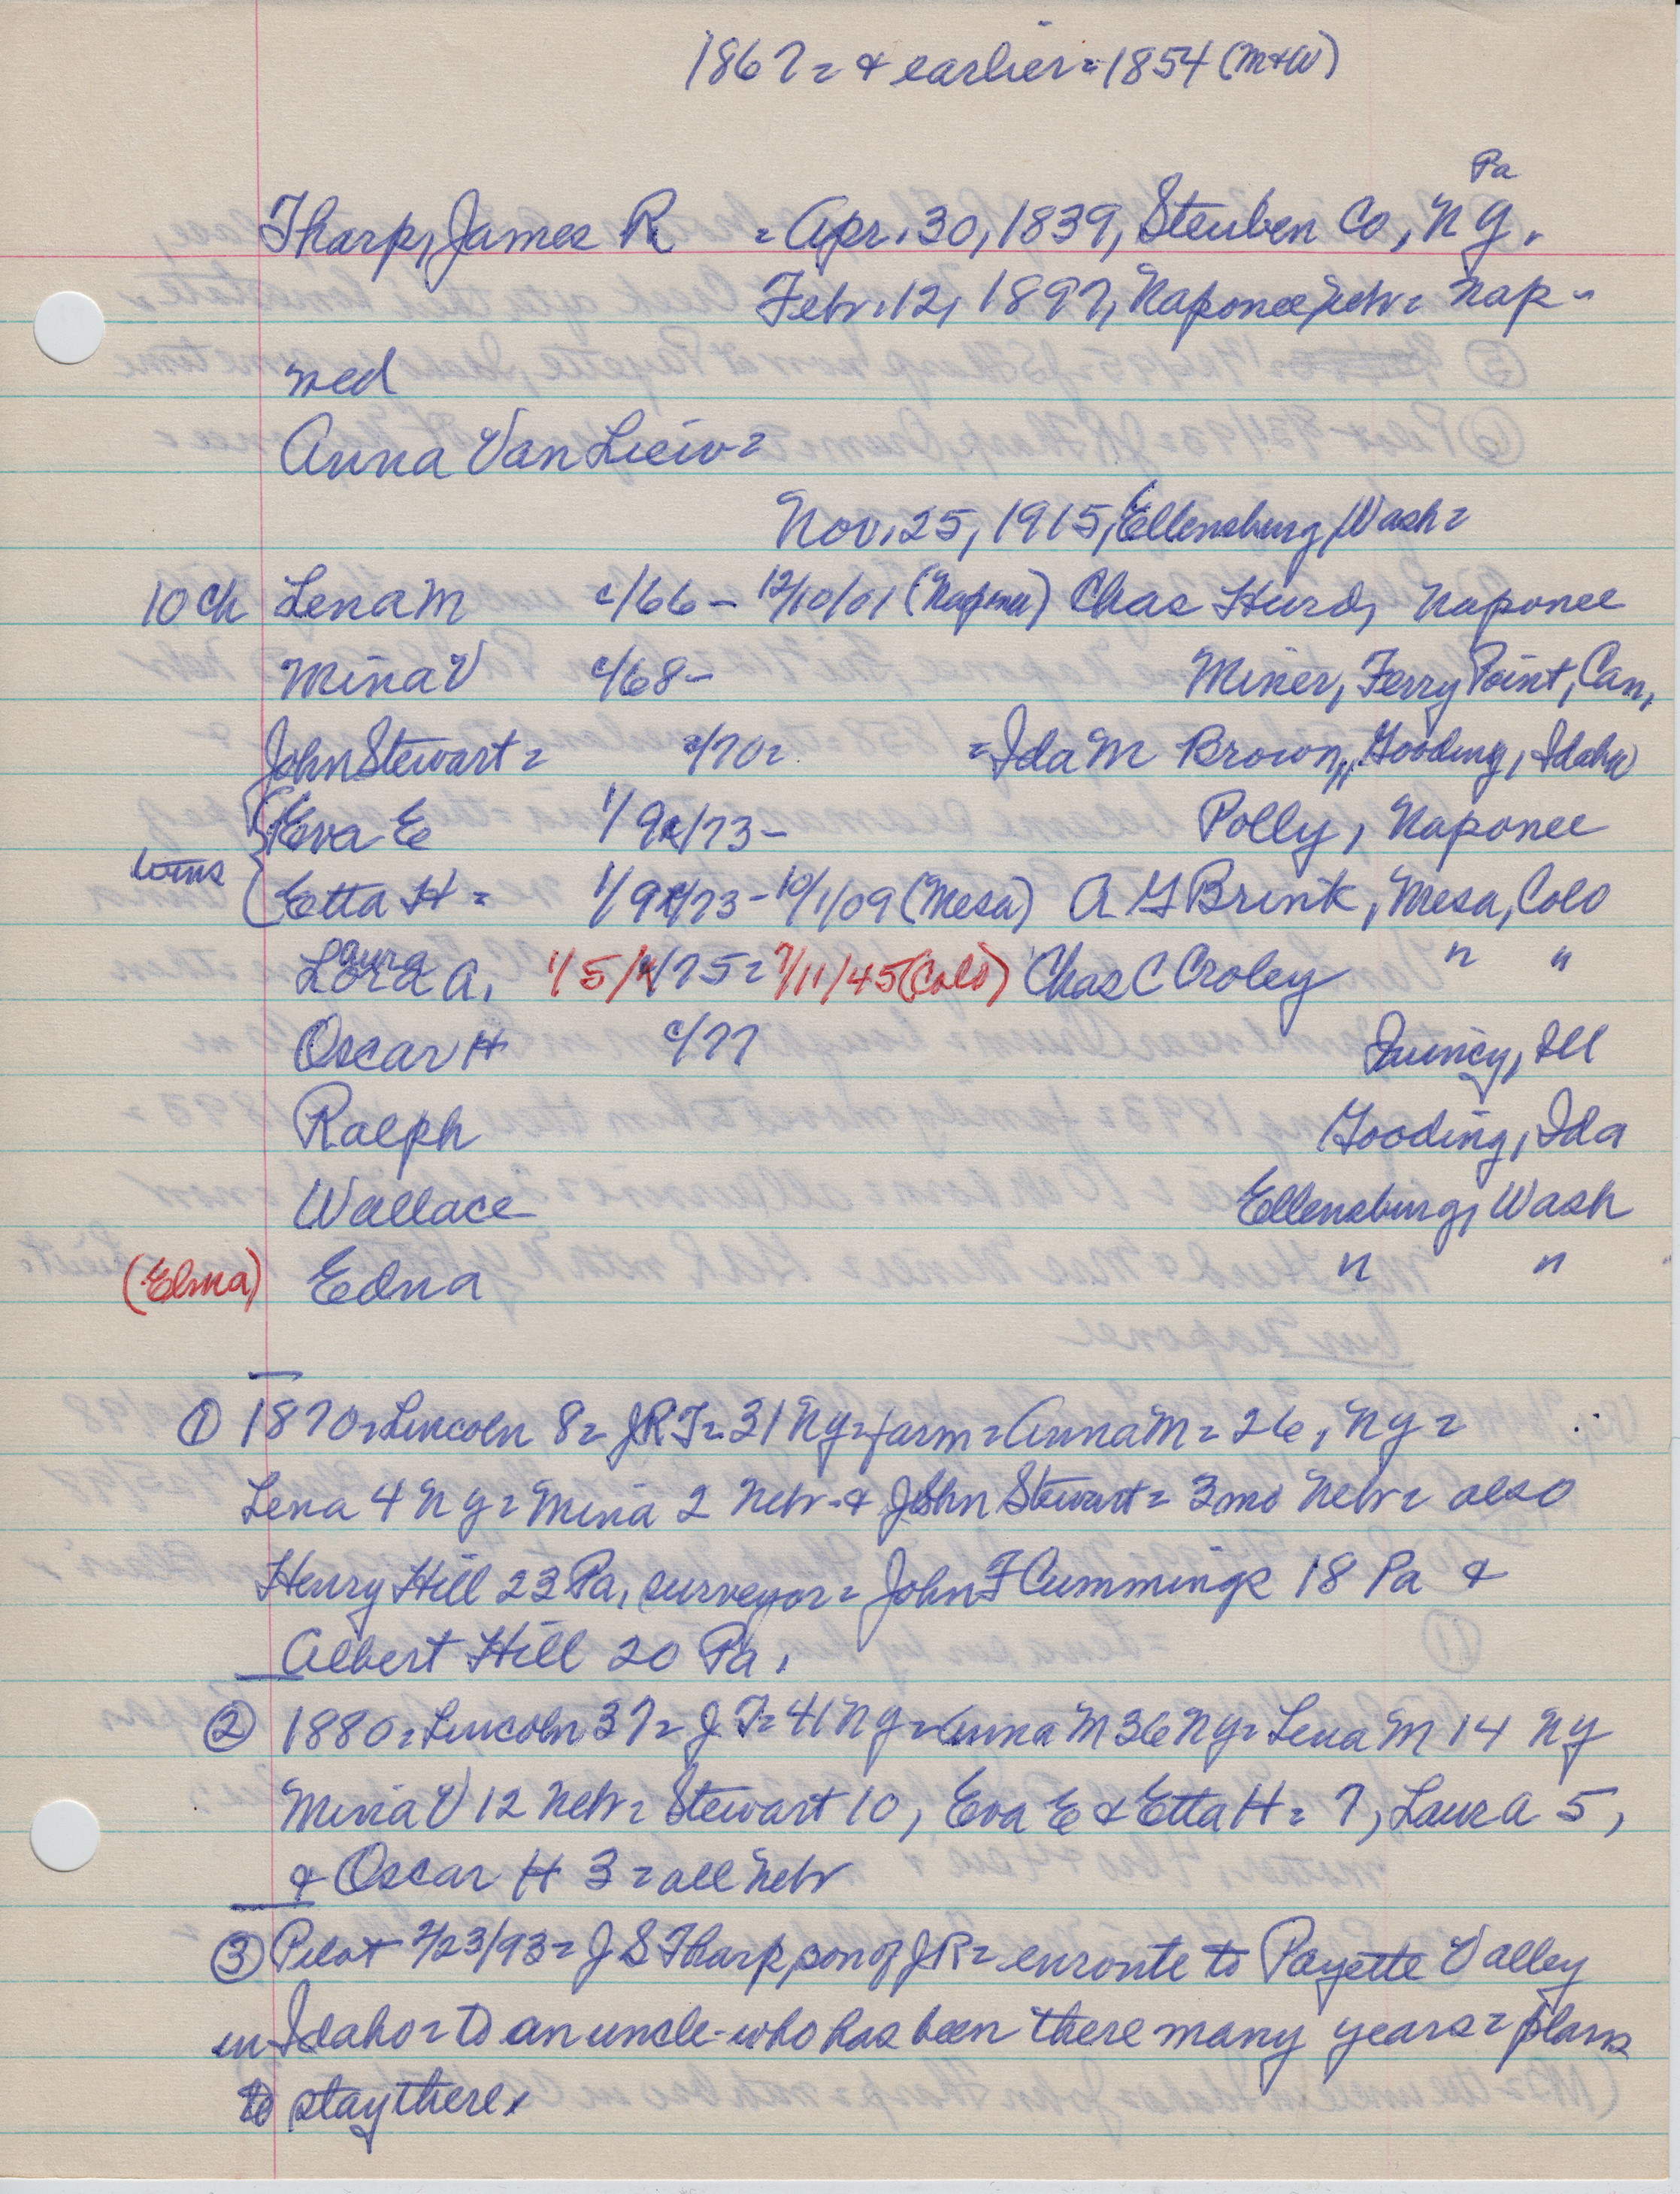 1867 = & earlier = 1854 (M&W)
Pa
Tharp, James R = Apr. 30, 1839, Steuben Co, N Y.
Febr. 12, 1897, Naponee, Nebr = Nap -
med
Anna Van Liew =
Nov. 25, 1915, Ellensburg, Wash =
10 ch Lena M c/66 - 12/10/01 (Naponee) Chas Hurd, Naponee
Mina V c/68 - Miner, Ferry Point, Can,
John Stewart = c/70 = = Ida M Brown, Gooding, Idaho
Eva E 1/9/73 - Polly, Naponee
twins
Etta H = 1/9/73 - 10/1/09 (Mesa) A G Brink, Mesa, Colo
Laura A. 1/5/75 = 7/11/45 (Colo) Chas C Croley " "
Oscar H c/77 Quincy, Ill
Ralph Gooding, Ida
Wallace Ellensburg, Wash
(Elma) Edna " "
① 1870 = Lincoln 8 = JRT = 31 NY = farm = Anna M = 26, NY =
Lena 4 NY = Mina 2 Nebr - & John Stewart = 3 mo Nebr = also
Henry Hill 23 Pa, surveyor = John F Cummings 18 Pa &
Albert Hill 20 Pa.
② 1880 = Lincoln 37 = J T = 41 NY = Anna M 36 NY = Lena M 14 NY
Mina V 12 Nebr = Stewart 10, Eva E & Etta H = 7, Laura 5,
& Oscar H 3 = all Nebr
③ Pilot 2/23/93 = J S Tharp, son of JR = enroute to Payette Valley
in Idaho = to an uncle - who has been there many years = plans
to stay there.